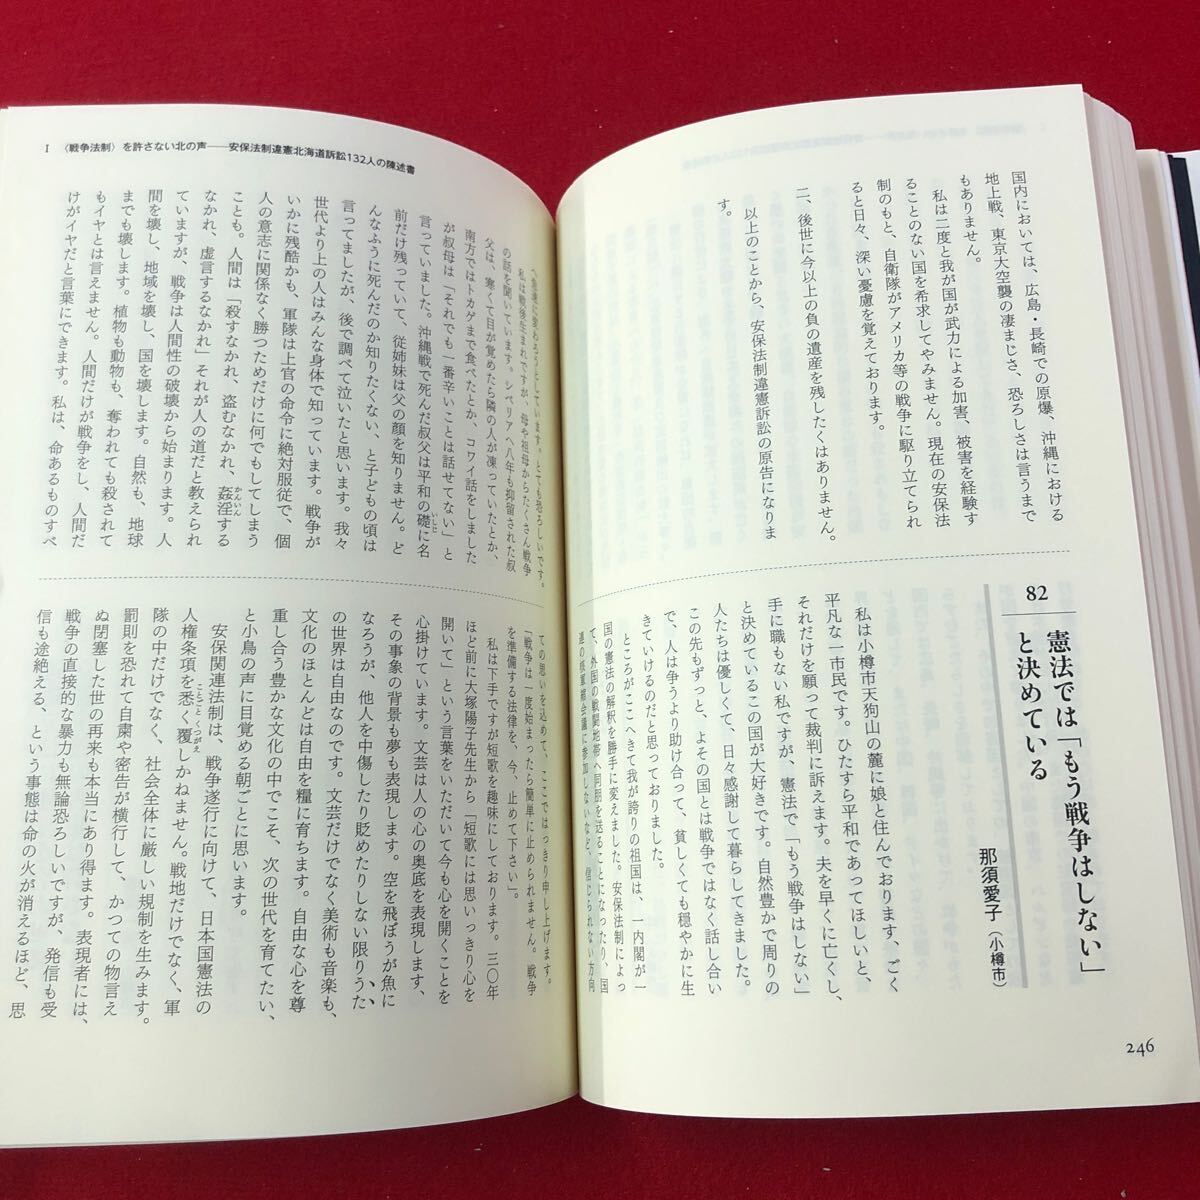 国内においては、広島・長崎での原爆、沖縄における
地上戦、東京大空襲の凄まじさ、恐ろしさは言うまで
もありません。
私は二度と我が国が武力による加害、被害を経験す
ることのない国を希求してやみません。現在の安保法
制のもと、自衛隊がアメリカ等の戦争に駆り立てられ
ると日々、深い憂慮を覚えております。
二、後世に今以上の負の遺産を残したくはありません。
以上のことから、安保法制違憲訴訟の原告になりま
す。
82
憲法では「もう戦争はしない」
と決めている
那須愛子（小樽市）
私は小樽市天狗山の麓に娘と住んでおります、ごく
平凡な一市民です。ひたすら平和であってほしいと、
それだけを願って裁判に訴えます。夫を早くに亡くし、
手に職もない私ですが、憲法で「もう戦争はしない」
と決めているこの国が大好きです。自然豊かで周りの
人たちは優しくて、日々感謝して暮らしてきました。
この先もずっと、よその国とは戦争ではなく話し合い
で、人は争うより助け合って、貧しくても穏やかに生
きていけるのだと思っておりました。
ところがここへきて我が誇りの祖国は、一内閣が一
国の憲法の解釈を勝手に変えました。安保法制によっ
て、外国の戦闘地帯へ同朋を送ることになったり、国
連の核軍縮会議に参加しないなど、信じられない方向
246
I 〈戦争法制〉を許さない北の声──安保法制違憲北海道訴訟132人の陳述書
へ急速に変わろうとしています。とても恐ろしいです。
私は戦後生まれですが、母や祖母からたくさん戦争
の話を聞いています。シベリアへ八年も抑留された叔
父は、寒くて目が覚めたら隣の人が凍っていたとか、
南方ではトカゲまで食べたとか、コワイ話をしました
が叔母は「それでも一番辛いことは話せてない」と
言っていました。沖縄戦で死んだ叔父は平和の礎に名
いしじ
前だけ残っていて、従姉妹は父の顔を知りません。ど
んなふうに死んだのか知りたくない、と子どもの頃は
言ってましたが、後で調べて泣いたと思います。我々
世代より上の人はみんな身体で知っています。戦争が
いかに残酷かも、軍隊は上官の命令に絶対服従で、個
人の意志に関係なく勝つためだけに何でもしてしまう
ことも。人間は「殺すなかれ、盗むなかれ、姦淫する
かんいん
なかれ、虚言するなかれ」それが人の道だと教えられ
ていますが、戦争は人間性の破壊から始まります。人
間を壊し、地域を壊し、国を壊します。自然も、地球
までも壊します。植物も動物も、奪われても殺されて
もイヤとは言えません。人間だけが戦争をし、人間だ
けがイヤだと言葉にできます。私は、命あるものすべ
ての思いを込めて、ここではっきり申し上げます。
「戦争は一度始まったら簡単に止められません。戦争
を準備する法律を、今、止めて下さい」。
私は下手ですが短歌を趣味にしております。三〇年
ほど前に大塚陽子先生から「短歌には思いっきり心を
開いて」という言葉をいただいて今も心を開くことを
心掛けています。文芸は人の心の奥底を表現します、
その事象の背景も夢も表現します。空を飛ぼうが魚に
なろうが、他人を中傷したり貶めたりしない限りうた
の世界は自由なのです。文芸だけでなく美術も音楽も、
文化のほとんどは自由を糧に育ちます。自由な心を尊
重し合う豊かな文化の中でこそ、次の世代を育てたい、
と小鳥の声に目覚める朝ごとに思います。
安保関連法制は、戦争遂行に向けて、日本国憲法の
人権条項を悉く覆しかねません。戦地だけでなく、軍
ことごとくつがえ
隊の中だけでなく、社会全体に厳しい規制を生みます。
罰則を恐れて自粛や密告が横行して、かつての物言え
ぬ閉塞した世の再来も本当にあり得ます。表現者には、
戦争の直接的な暴力も無論恐ろしいですが、発信も受
信も途絶える、という事態は命の火が消えるほど、思